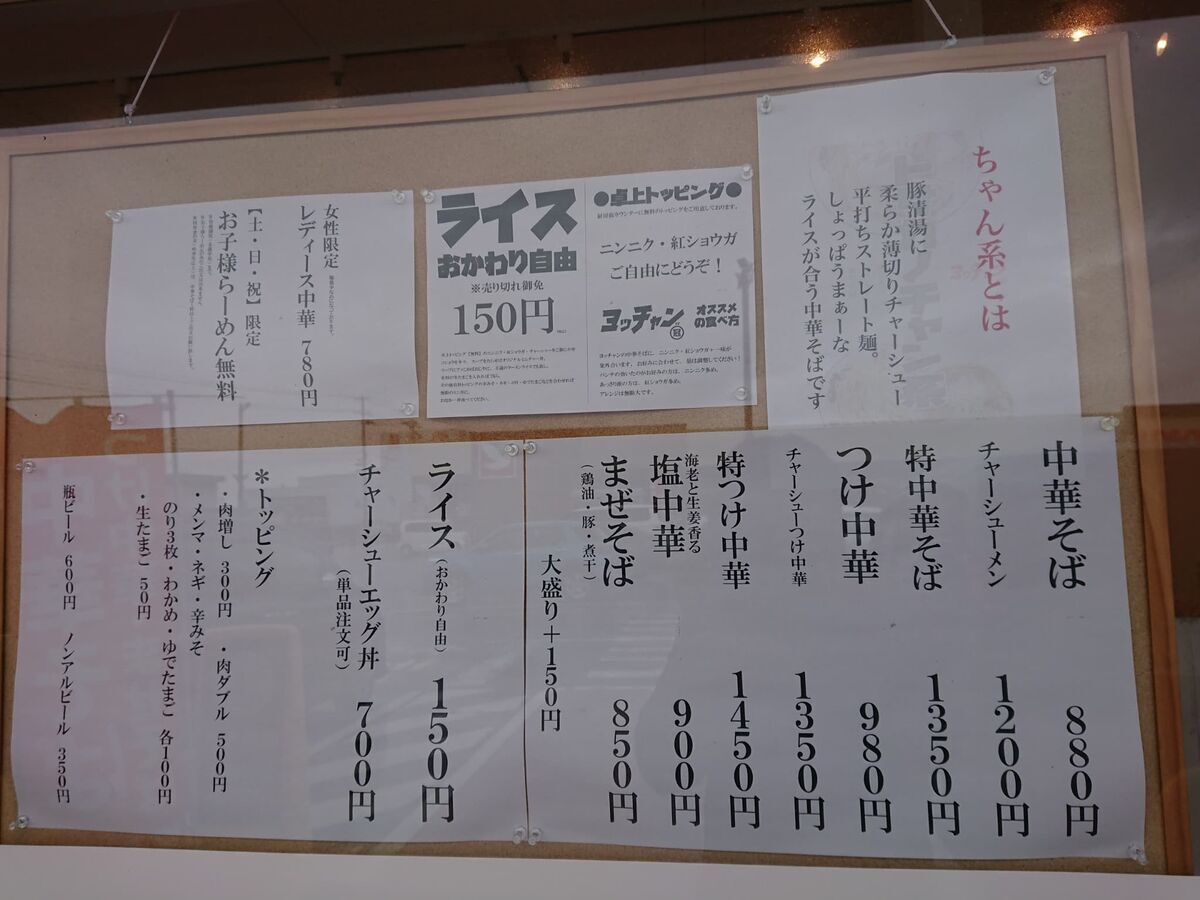 ちゃん系とは
豚清湯に
柔らか薄切りチャーシュー
平打ちストレート麺。
しょっぱうまぁーな
ライスが合う中華そばです
ライス
おかわり自由
※売り切れ御免
150円
●卓上トッピング●
ニンニク・紅ショウガ
ご自由にどうぞ！
ヨッチャン
オススメ
の食べ方
ヨッチャンの中華そばに、ニンニク・紅ショウガ+一味が
パンチの効いたのがお好みの方は、ニンニク多め。
あっさり派の方は、紅ショウガ多め。
アレンジは無限大です。
女性限定
レディース中華 780円
【土・日・祝】限定
お子様らーめん無料
中華そば 880円
チャーシューメン 1200円
特中華そば 1350円
つけ中華 980円
チャーシューつけ中華 1350円
特つけ中華 1450円
海老と生姜香る
塩中華 900円
まぜそば 850円
(鶏油・豚・煮干)
大盛り+150円
ライス(おかわり自由) 150円
チャーシューエッグ丼 700円
(単品注文可)
*トッピング
・肉増し 300円 ・肉ダブル 500円
・メンマ・ネギ・辛みそ
のり3枚・わかめ・ゆでたまご 各100円
・生たまご 50円
瓶ビール 600円 ノンアルビール 350円